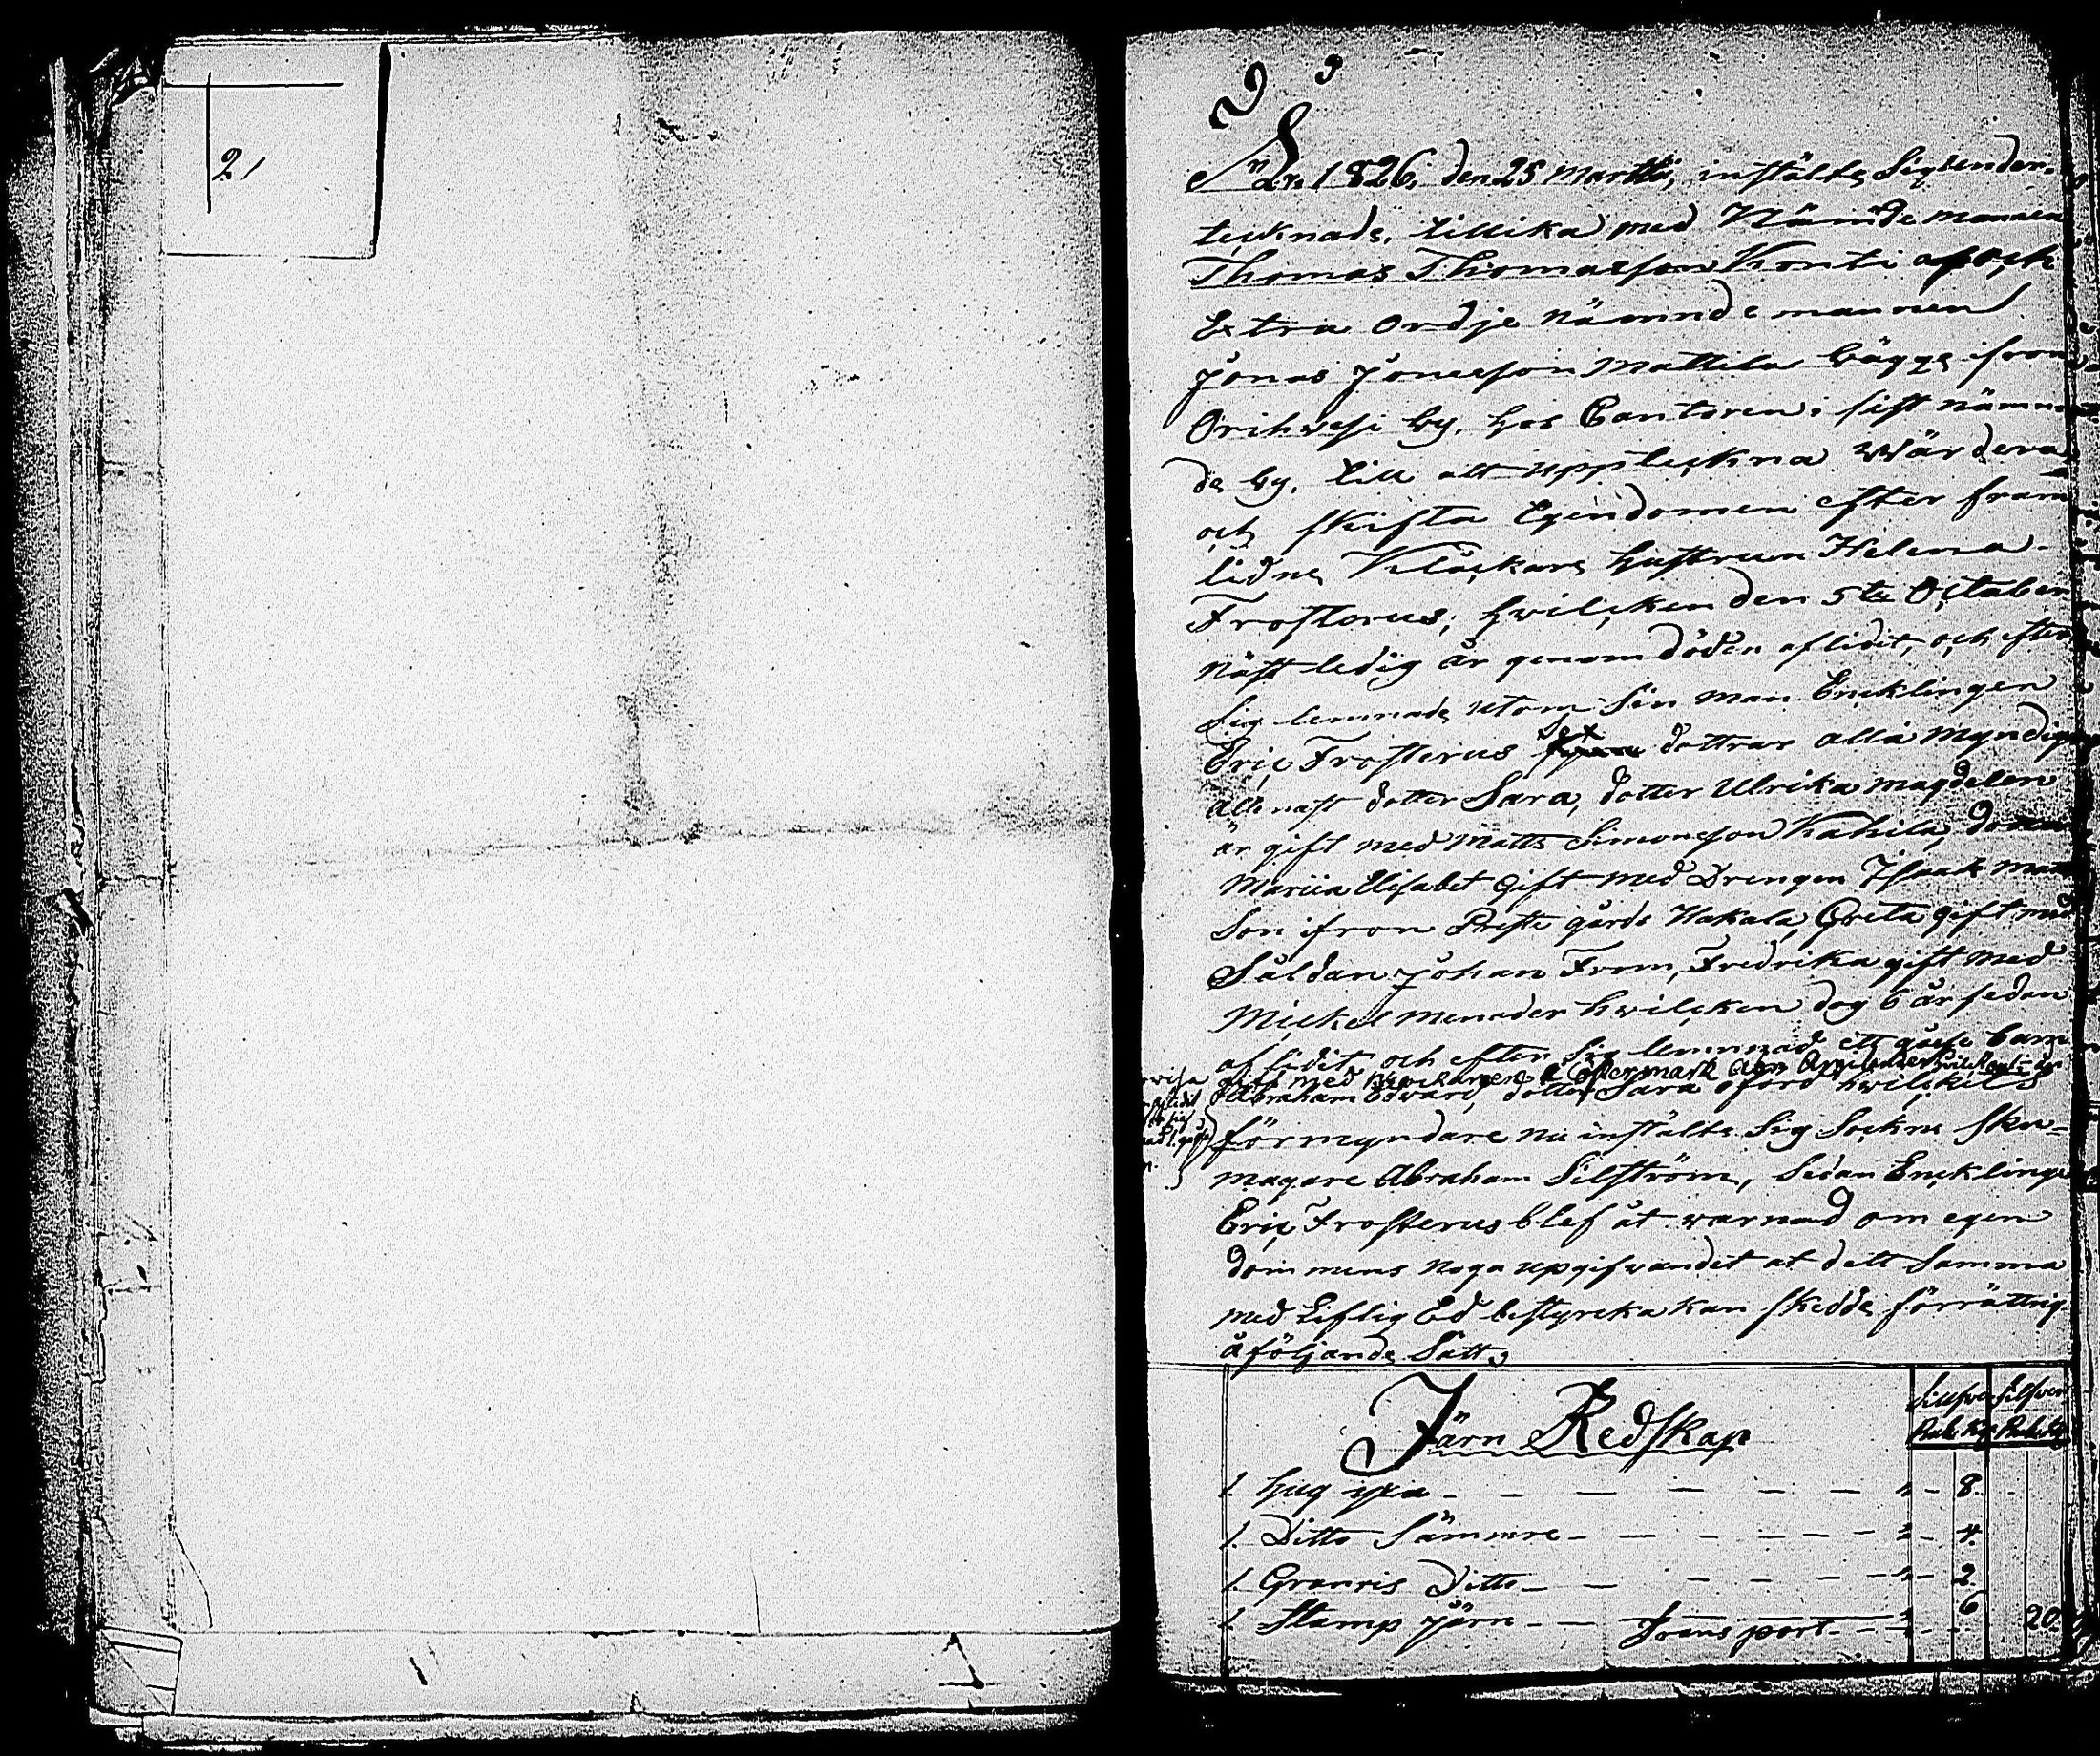 21
År 1826, den 25 Martti, instälte Sig under-
tecknade, tillika med Nämde mannen
Thomas Thomasson Konti af och
Extra Ordje nämnde mannen
Jonas Jonasson Mattila bägge ifron
Orihvesi by, hos Cantoren i sist nämn
de by, till att uppteckna Wärdera
och skifta Egendomen efter fram
lidne Klåckare hustrun Helena
Frosterus, hvilcken den 5te October
näst ledig år genom döden aflidit, och efter
Sig lemnade utom Sin man Encklingen
Eric Frosterus sex döttrar alla Myndige
allenast dotter Sara, dotter Ulrika Magdelen
är gift med Matts Simonsson Kahila, dotter
Mariia Elisabet Gift med Drengen Isaak Matts
Son ifron Preste gårds Hakala, Greta gift med
Såldan Johan From, Fredrika gift med
Mickel Menader hvilcken dog 6 år sedan
aflidit och efter Sig lemnade ett gåsse barn
gift med
Abraham Edvard, dotter Sara oford hvilckets
förmyndare nu instälte Sig Sockne sku-
magare Abraham Silström, Sedan Encklinge
Eric Frosterus blef åt warnad om egen
dommens noga upgifvandet at dett Samma
med Liflig Ed bestyrcka kan skedde förrättnig
å följande Sätt,
Järn Redskap
Silfver Silfver
Rub. K. Rub. K.
1. Hug yxa - - - - - - " - 8.
1. Ditto Sämmre - - - - - " - 4.
1. Granris Ditto - - - - - " - 2.
1. Stamp Järn - - Transport - - " - 6 20